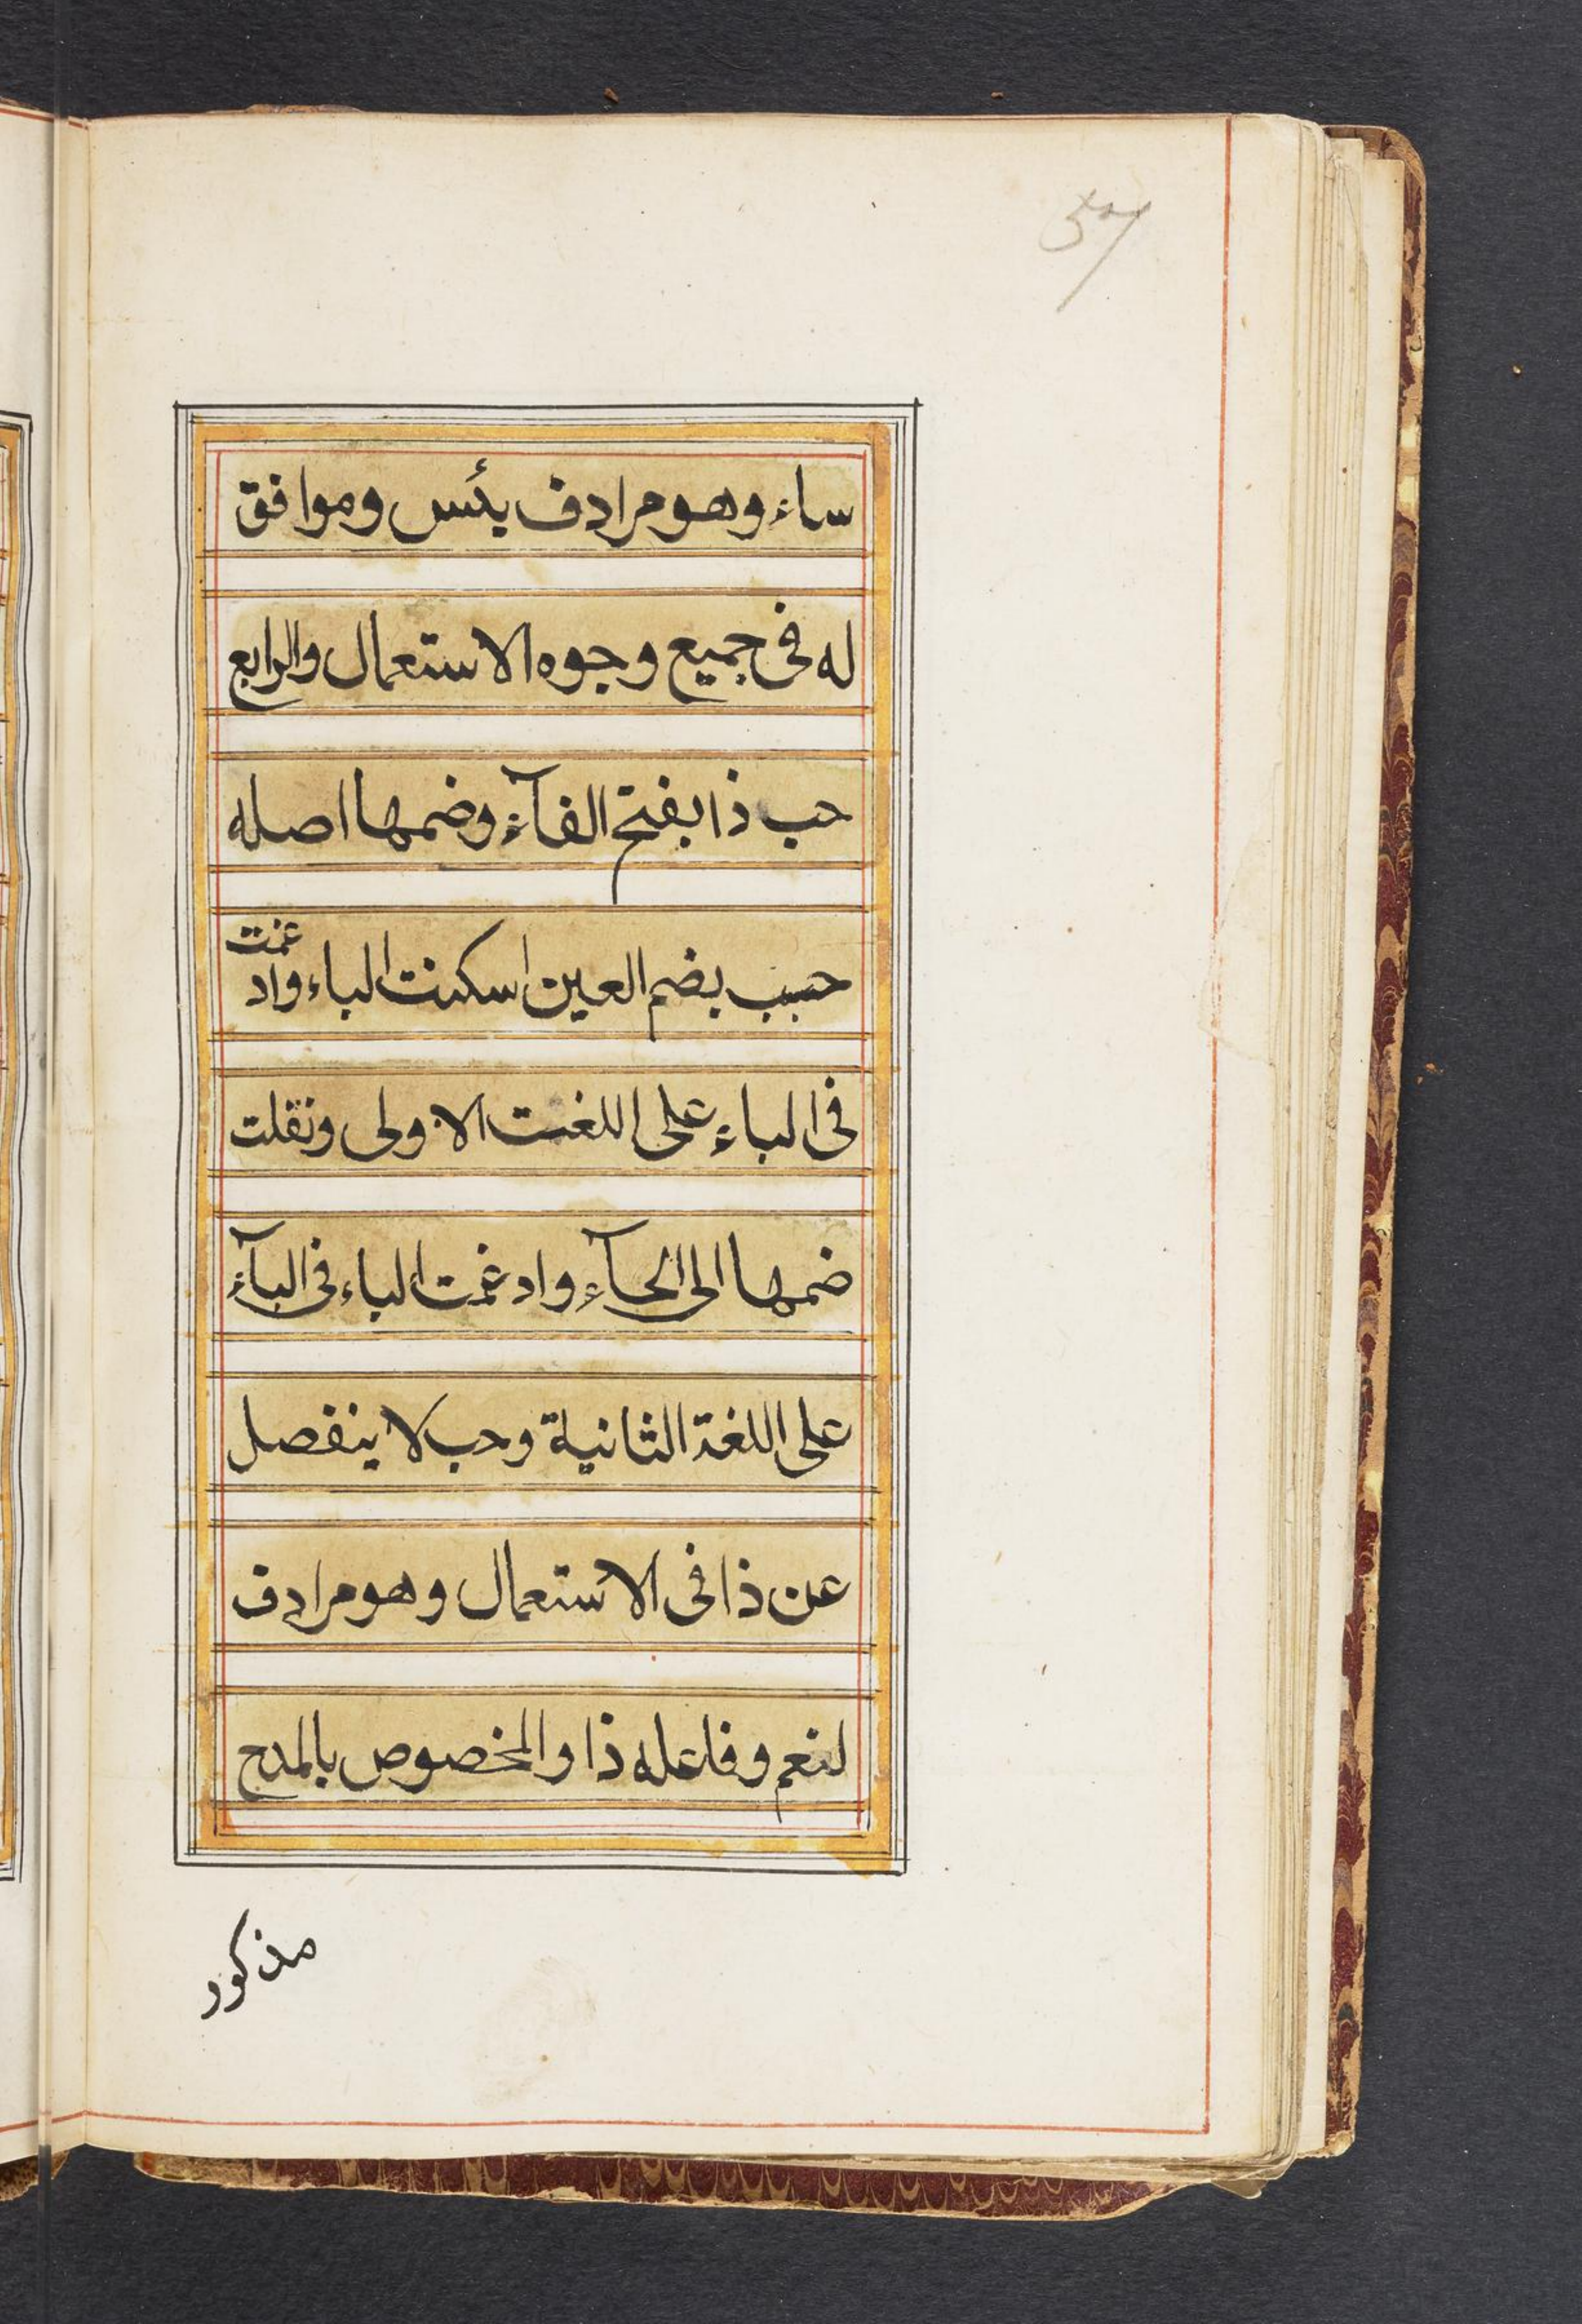 57
ساء وهو مرادف بئس وموافق
له فى جميع وجوه الاستعمال والرابع
حب ذا بفتح الفآء وضمها اصله
حبب بضم العين اسكنت الباء وادغمت
فى الباء على اللغت الاولى ونقلت
ضمها الى الحآء وادغمت الباء فى البآء
على اللغة الثانية وحب لا ينفصل
عن ذا فى الاستعمال وهو مرادف
لنعم وفاعله ذا والمخصوص بالمدح
مذكور